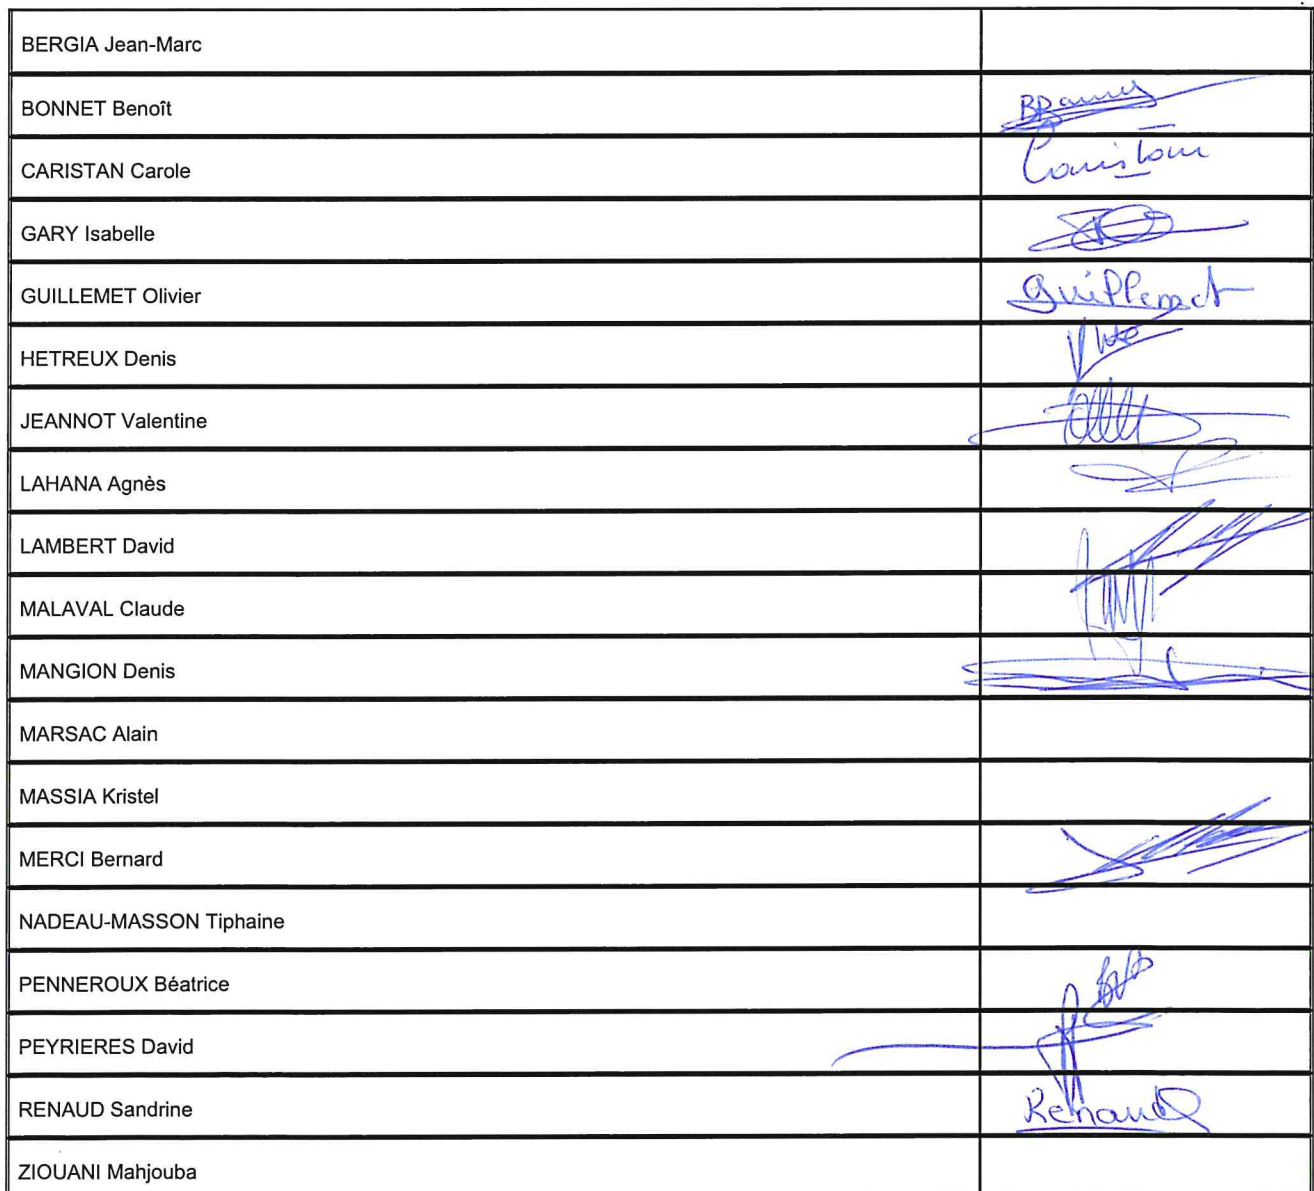 BERGIA Jean-Marc
BONNET Benoît
CARISTAN Carole Caristan
GARY Isabelle
GUILLEMET Olivier Guillemet
HETREUX Denis
JEANNOT Valentine
LAHANA Agnès
LAMBERT David
MALAVAL Claude
MANGION Denis
MARSAC Alain
MASSIA Kristel
MERCI Bernard
NADEAU-MASSON Tiphaine
PENNEROUX Béatrice
PEYRIERES David
RENAUD Sandrine Renaud
ZIOUANI Mahjouba